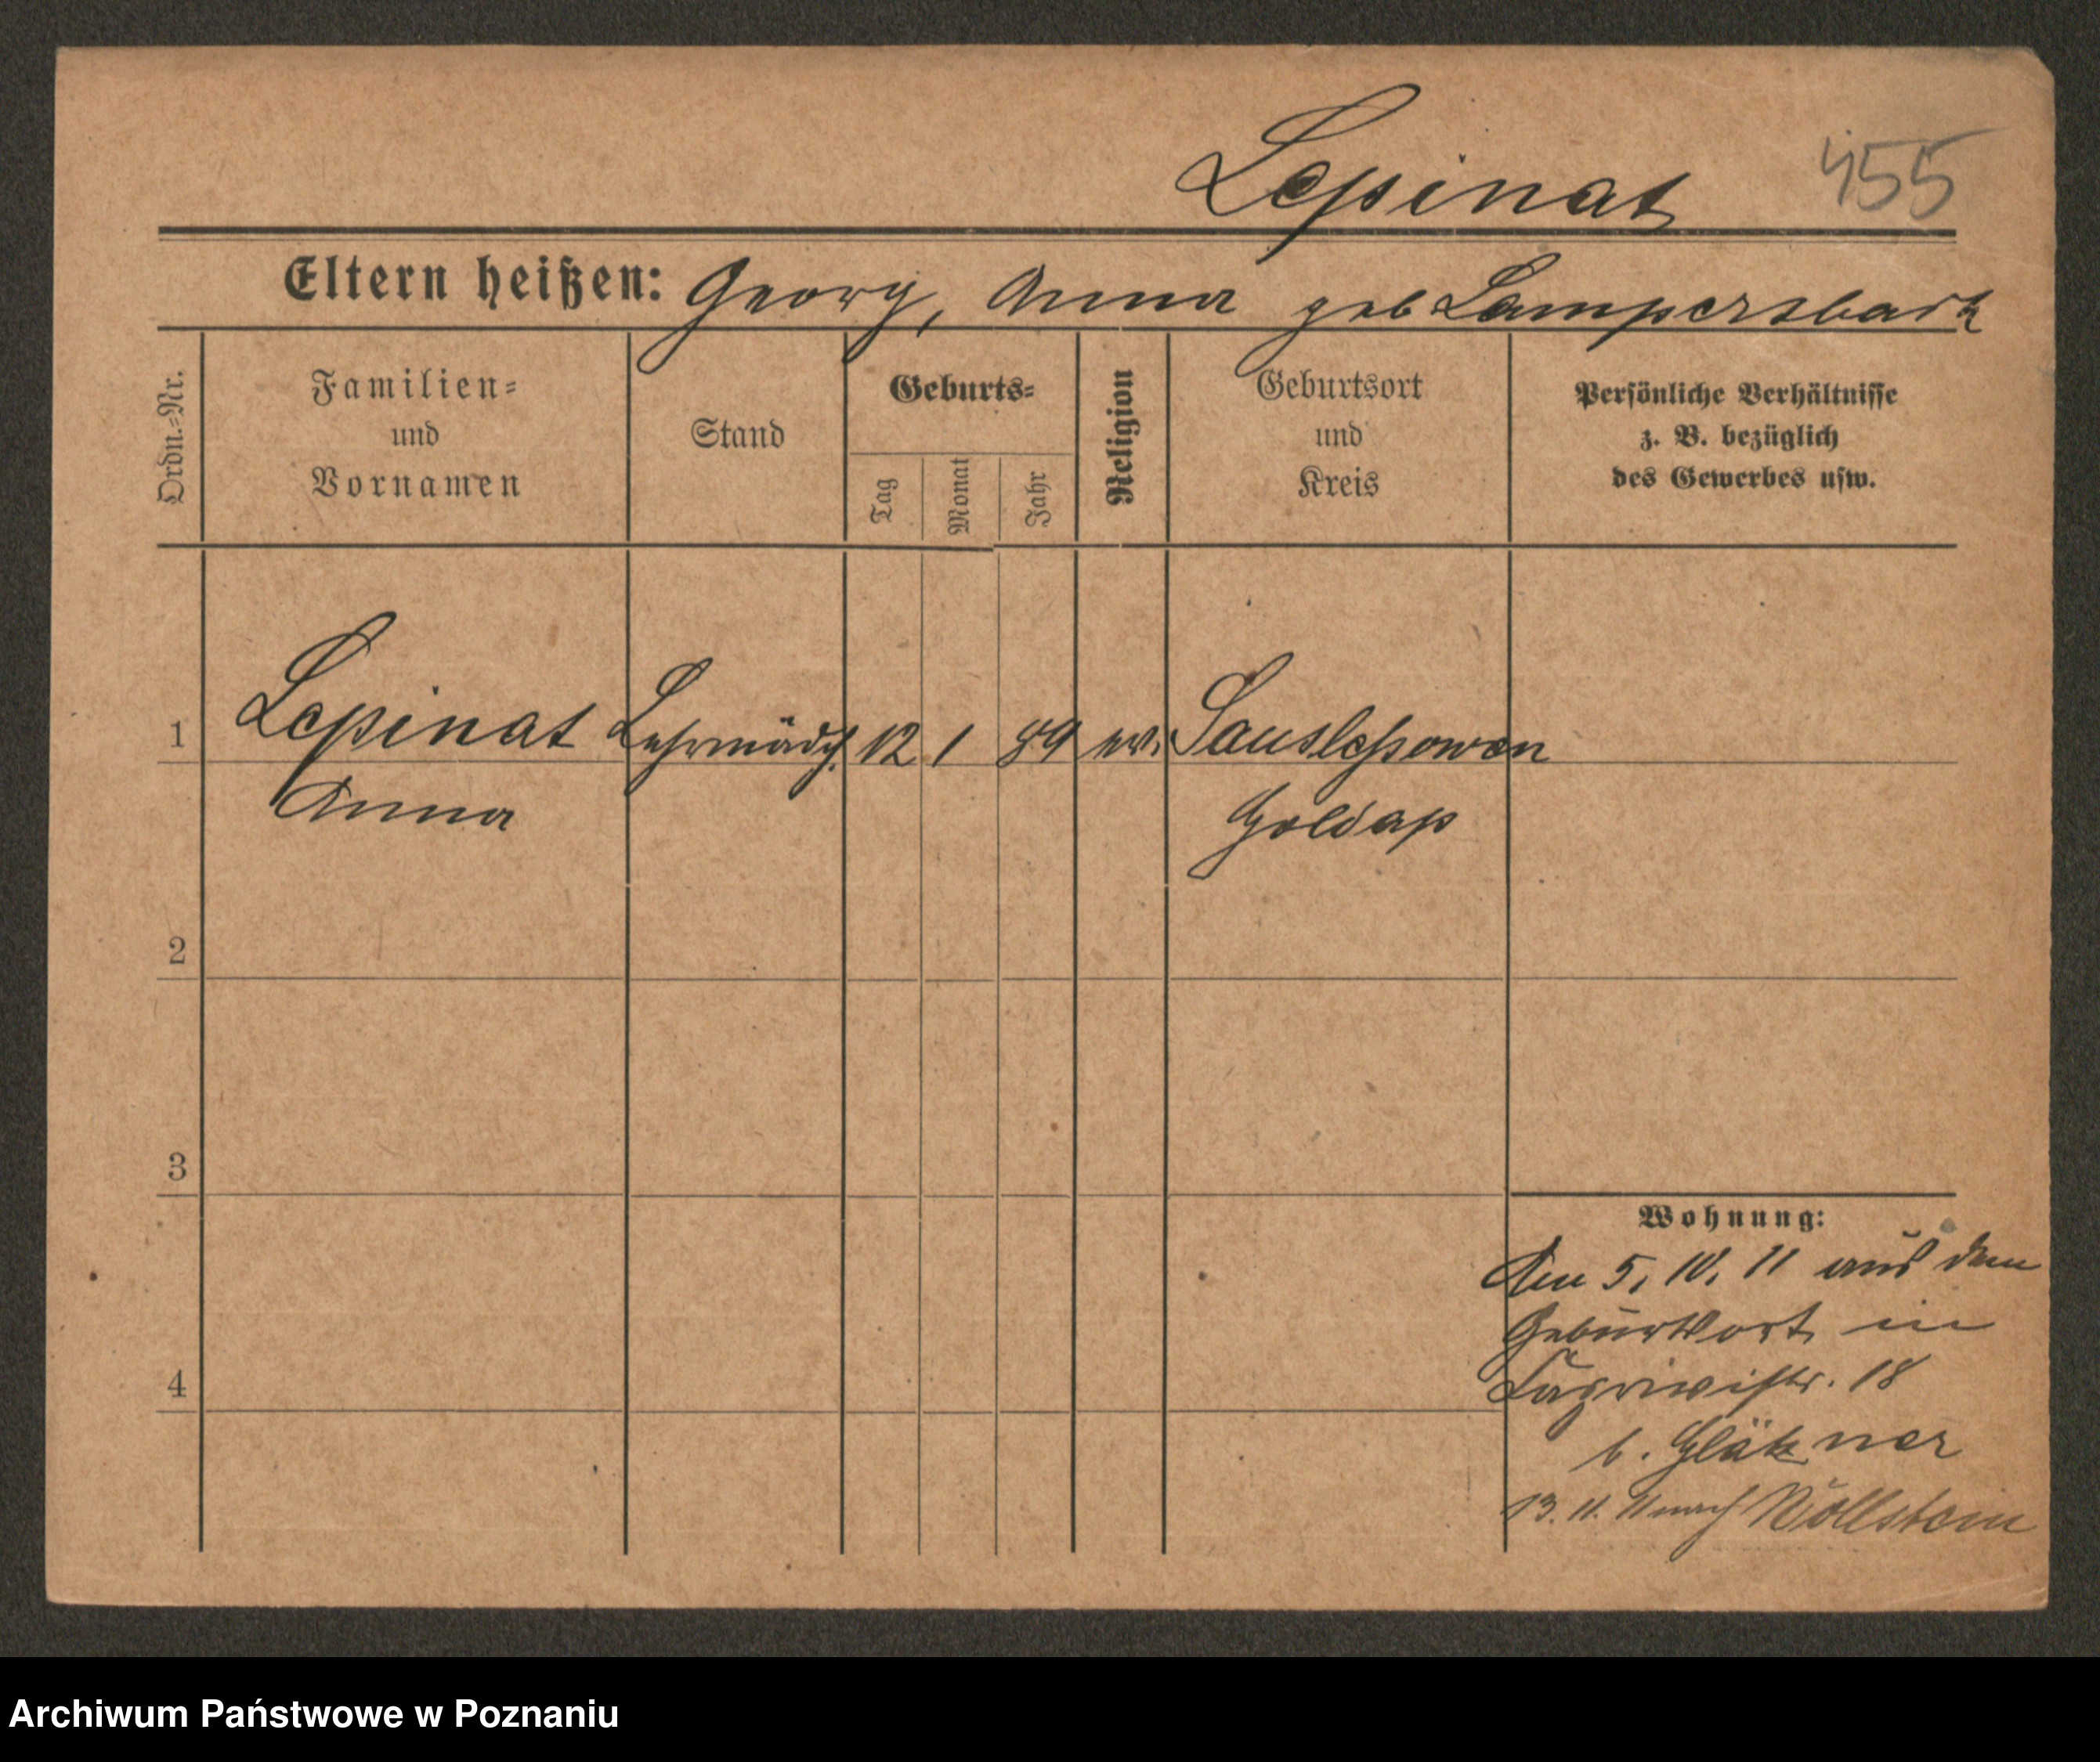 Lepinat 455
Eltern heißen: Georg, Anna geb Lampersbach
Ordn.-Nr.
Familien-
und
Vornamen
Stand
Geburts-
Tag
Monat
Jahr
Religion
Geburtsort
und
Kreis
Persönliche Verhältnisse
z. B. bezüglich
des Gewerbes usw.
1 Lepinat Lehrmädch. 12 1 89 ev. Sauslepowen
Anna Goldap
2
3
4
Wohnung:
Am 5. 10. 11 aus dem
Geburtsort in
18
b. Gläkner
13. 11. 11 nach Wollstein
Archiwum Państwowe w Poznaniu